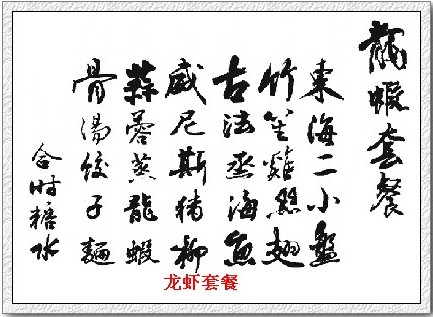 龍蝦套餐
東海二小盤
竹笙雞絲翅
古法蒸海魚
威尼斯豬柳
蒜蓉蒸龍蝦
骨湯餃子麵
合时糖水
龙虾套餐